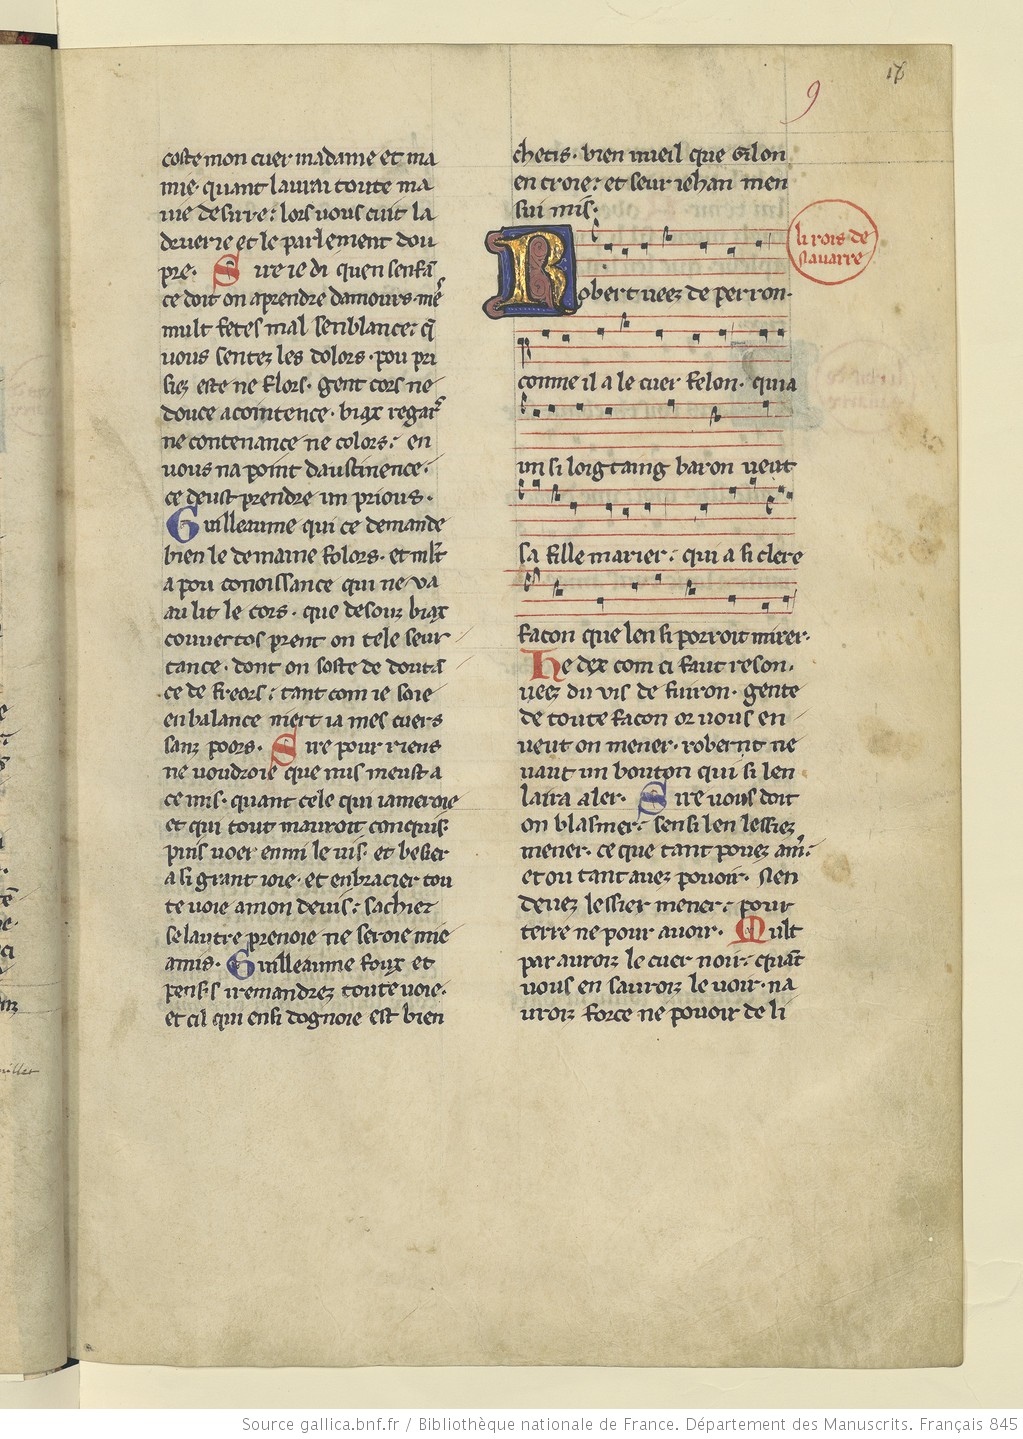 17
9
coste mon cuer madame et ma
mie. quant laurai toute ma
uie desirre: lors uous cuit la
druerie et le parlement dou
pre. Sire ie di quen senfā
ce doit on aprendre damours. mes
mult fetes mal senblance: q̄
uous sentez les dolors. pou pri
siez este ne flors. gent cors ne
douce acointence. biax regar
ne contenance ne colors: en
uous na point daustinence.
ce deust prendre un prious.
Guilleaume qui ce demande
bien le demaine folors. et mlt
a pou conoissance qui ne va
au lit le cors. que desouz biax
couuertos prent on tele seur
tance. dont on soste de doutā
ce de freors: tant com ie soie
en balance niert ia mes cuers
sanz poors. Sire pour riens
ne uoudroie que nus meust a
ce mis. quant cele qui iameroie
et qui tout mauroit conquis.
puis uoer enmi le uis. et besier
a si grant ioie. et enbracier tou
te uoie a mon deuis: sachiez
se lautre prenoie ne seroie mie
amis. Guilleaume foux et
pensis i remandrez toute uoie.
et cil qui ensi dognoie est bien
chetis. bien uueil que Gilon
en croie: et seur iehan men
sui mis.
li rois de
nauarre
Robert ueez de perron.
comme il a le cuer felon. qui a
un si loigtaing baron ueut
sa fille marier: qui a si clere
facon que len si porroit mirer.
He dex com ci faut reson.
ueez du vis de fuiron. gente
de toute facon or uous en
ueut on mener. robert ne
uaut un bouton qui si len
laira aler. Sire uous doit
on blasmer: sensi len lessiez
mener. ce que tant pouez am̄:
et ou tant auez pouoir. nen
deuez lessier mener: pour
terre ne pour auoir. Mult
par auroiz le cuer noir: quāt
uous en sauroiz le uoir. na
uroiz force ne pouoir de li
Source gallica.bnf.fr / Bibliothèque nationale de France. Département des Manuscrits. Français 845